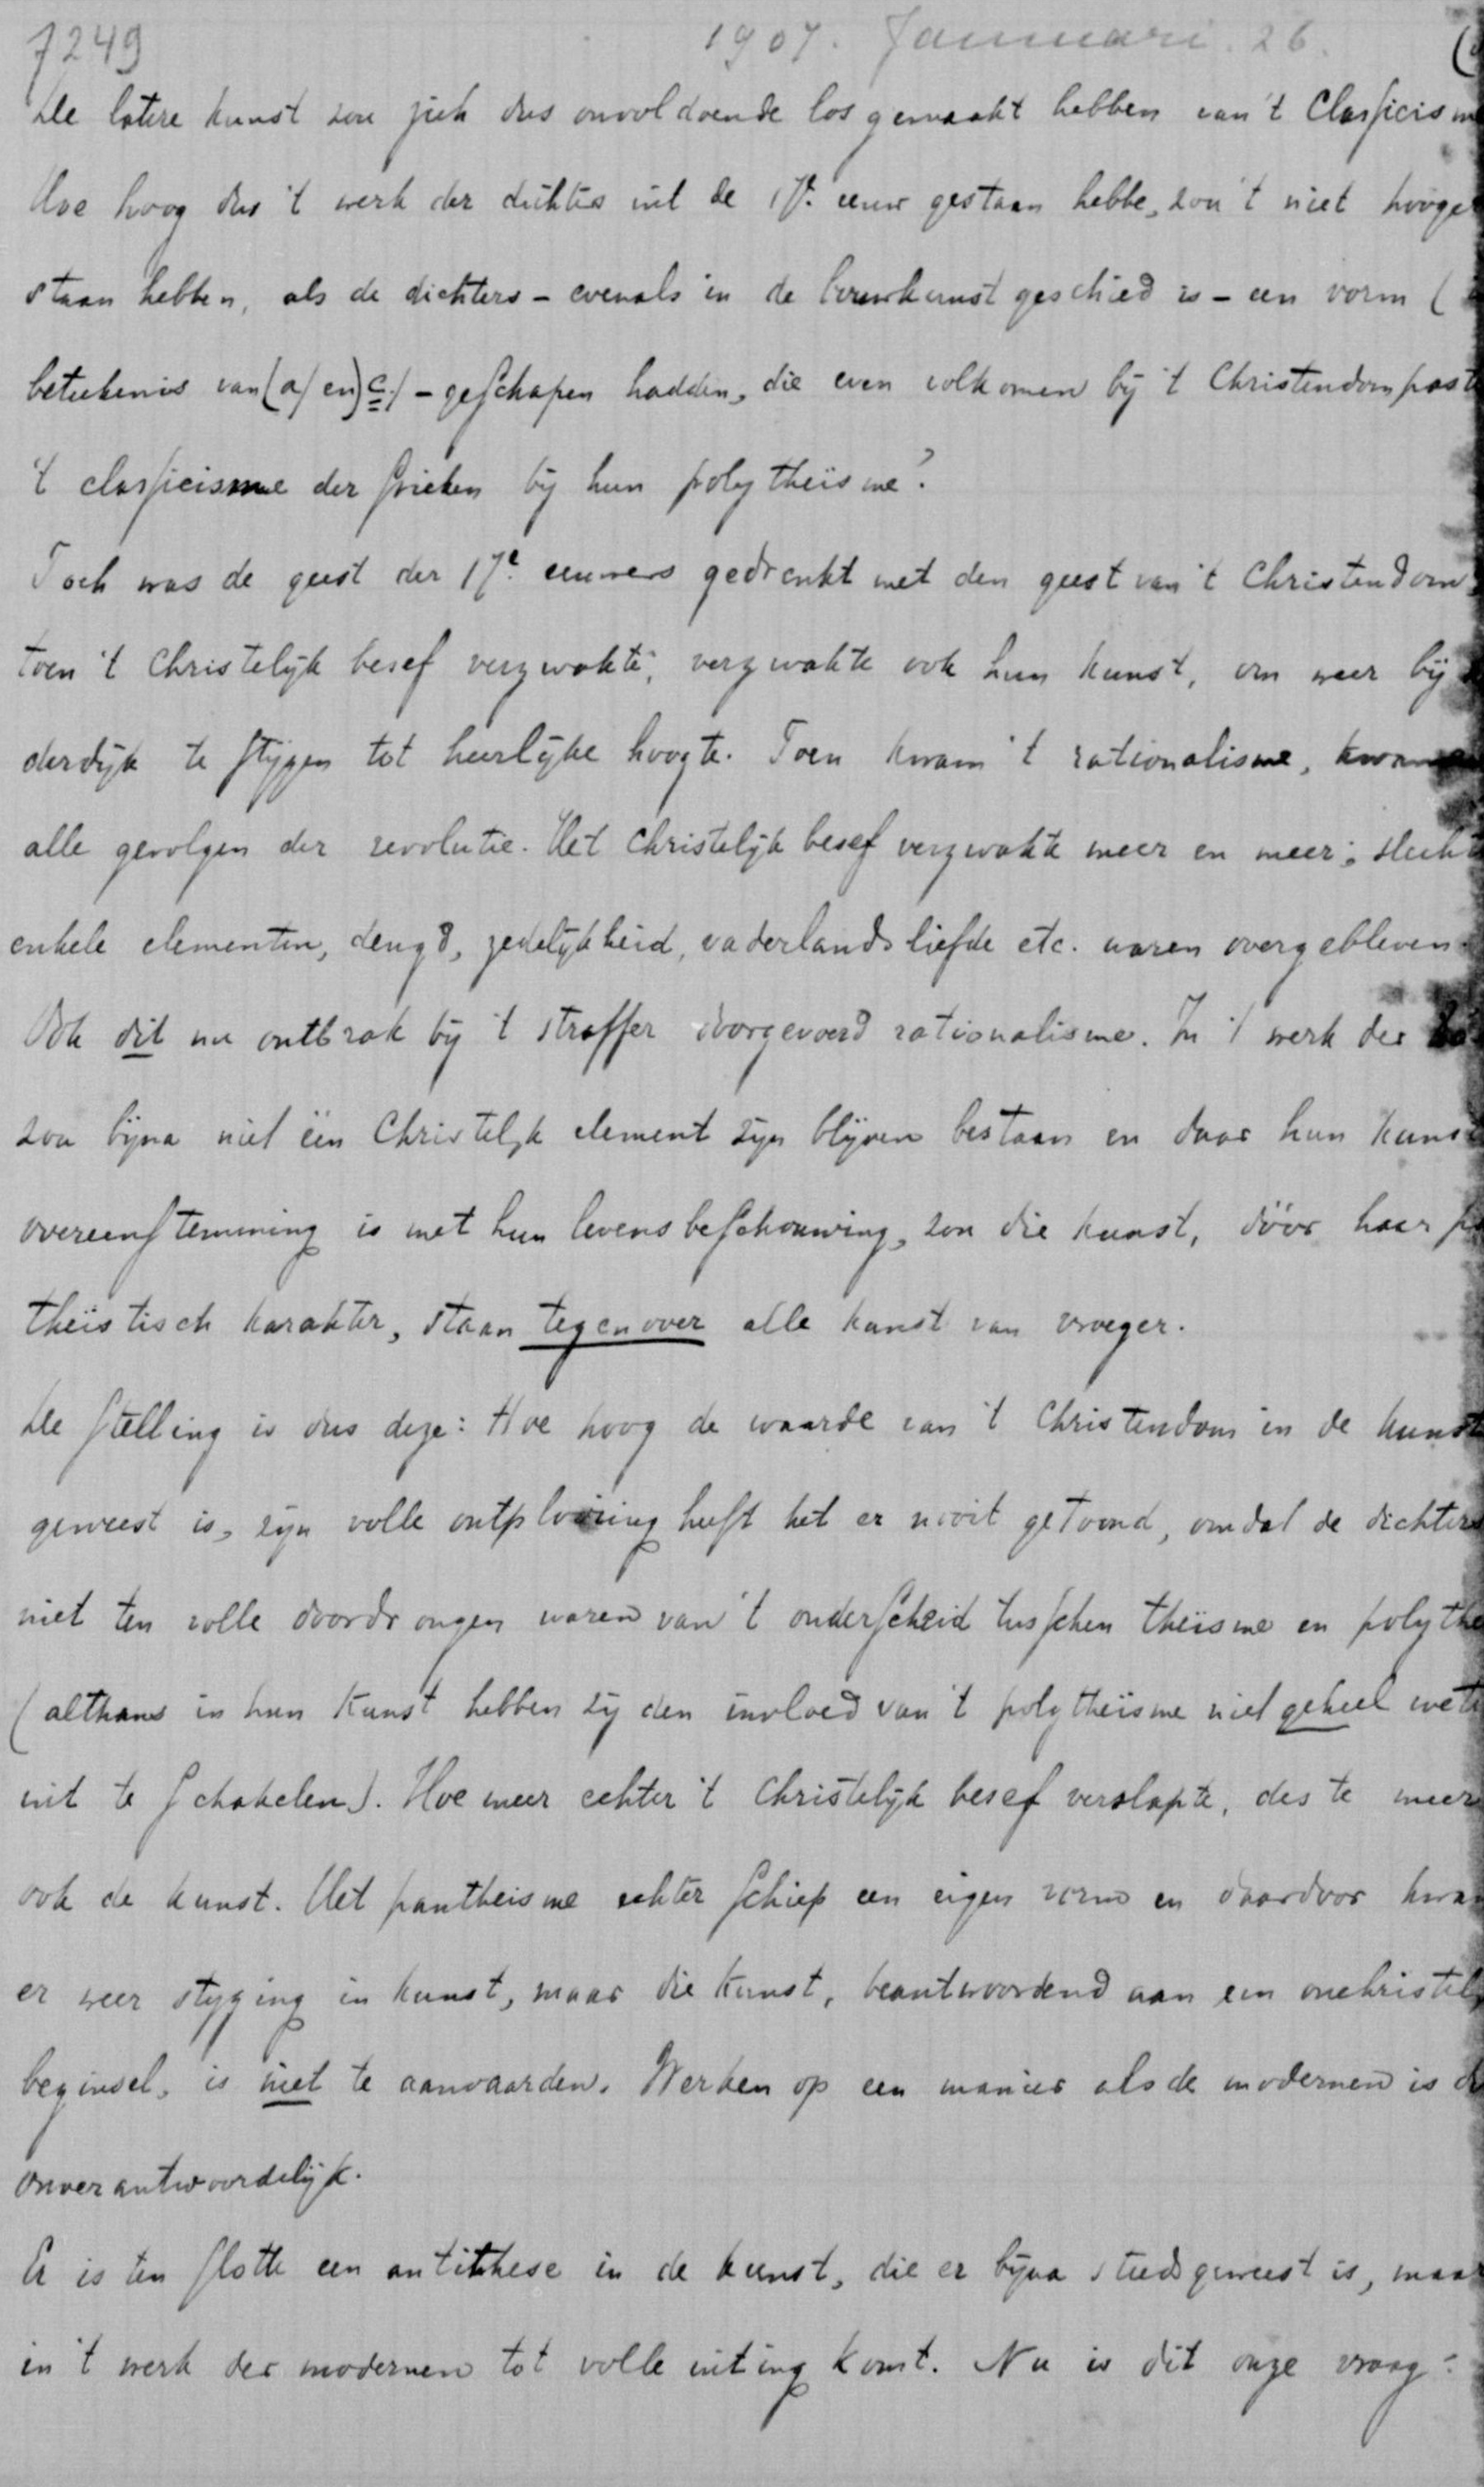 7249 1907. Januari. 26.
De latere kunst zou zich dus onvoldoende losgemaakt hebben van 't Classicism
Hoe hoog dus 't werk der dichters uit de 17e eeuw gestaan hebbe, zou 't niet hooger
staan hebben, als de dichters - evenals in de bouwkunst geschied is - een vorm (
beteekenis van (a/ en) c/ - geschapen hadden, die even volkomen bij 't Christendom past
't classicisme der Grieken bij hun polytheïsme?
Toch was de geest der 17e eeuwers gedrenkt met den geest van 't Christendom
toen 't Christelijk besef verzwakte, verzwakte ook hun kunst, om weer bij
derdijk te stijgen tot heerlijke hoogte. Toen kwam 't rationalisme, kwam
alle gevolgen der revolutie. Het Christelijk besef verzwakte meer en meer; slecht
enkele elementen, deugd, zedelijkheid, vaderlandsliefde etc. waren overgebleven.
Ook dit nu ontbrak bij 't straffer doorgevoerd rationalisme. In 't werk der
zou bijna niet één Christelijk element zijn blijven bestaan en daar hun kunst
overeenstemming is met hun levensbeschouwing, zou die kunst, dóór haar
theïstisch karakter, staan tegenover alle kunst van vroeger.
De stelling is dus deze: Hoe hoog de waarde van 't Christendom in de kunst
geweest is, zijn volle ontplooiing heeft het er nooit getoond, omdat de dichters
niet ten volle doordrongen waren van 't onderscheid tusschen theïsme en polythe
(althans in hun kunst hebben zij den invloed van 't polytheïsme niet geheel wete
uit te schakelen). Hoe meer echter 't Christelijk besef verslapte, des te meer
ook de kunst. Het pantheisme echter schiep een eigen vorm en daardoor kwa
er weer stijging in kunst, maar die kunst, beantwoordend aan een onchristel
beginsel, is niet te aanvaarden. Werken op een manier als de modernen is d
onverantwoordelijk.
Er is ten slotte een antithese in de kunst, die er bijna steeds geweest is, maar
in 't werk der modernen tot volle uiting komt. Nu is dit onze vraag: